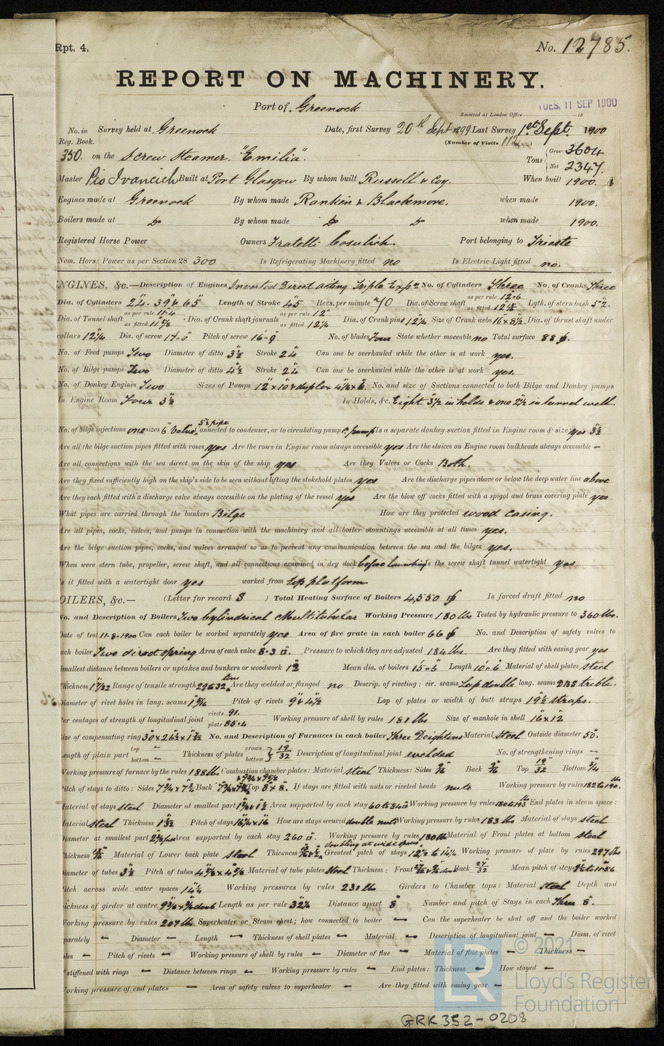 Rpt. 4. No. 12785.
REPORT ON MACHINERY.
Port of Greenock
Received at London Office TUES. 11 SEP 1900
No. in Survey held at Greenock Date, first Survey 20th Sept 1899 Last Survey 1st Sept. 1900
Reg. Book. (Number of Visits
350. on the Screw Steamer "Emilia". Tons Gross 3604 Net 2347.
Master Pio Ivancich Built at Port Glasgow By whom built Russell & Coy. When built 1900.
Engines made at Greenock By whom made Rankin & Blackmore. when made 1900.
Boilers made at Do By whom made Do Do when made 1900.
Registered Horse Power Owners Fratelli Cosulich. Port belonging to Trieste
Nom. Horse Power as per Section 28 300 Is Refrigerating Machinery fitted no Is Electric Light fitted no.
ENGINES, &c.—Description of Engines Inverted Direct acting Triple Expn No. of Cylinders Three No. of Cranks Three
Dia. of Cylinders 24" 39" & 65" Length of Stroke 45" Revs. per minute 70 Dia. of Screw shaft as per rule as fitted Lgth. of stern bush 52"
Dia. of Tunnel shaft as per rule 11.4 as fitted Dia. of Crank shaft journals as per rule 12" as fitted 12¼ Dia. of Crank pins 12¼ Size of Crank webs Dia. of thrust shaft under
collars 12¼ Dia. of screw 17-0 Pitch of screw 16-9 No. of blades Four State whether moveable no Total surface 88
No. of Feed pumps Two Diameter of ditto 3½ Stroke 24" Can one be overhauled while the other is at work yes.
No. of Bilge pumps Two Diameter of ditto 4½ Stroke 24" Can one be overhauled while the other is at work yes.
No. of Donkey Engines Two Sizes of Pumps No. and size of Suctions connected to both Bilge and Donkey pumps
In Engine Room Four 3½ In Holds, &c. Eight 3½ in holds & one 2½ in tunnel well
No. of Bilge injections one sizes connected to condenser, or to circulating pump C. pump Is a separate donkey suction fitted in Engine room & size yes 3½
Are all the bilge suction pipes fitted with roses yes Are the roses in Engine room always accessible yes Are the sluices on Engine room bulkheads always accessible —
Are all connections with the sea direct on the skin of the ship yes Are they Valves or Cocks Both.
Are they fixed sufficiently high on the ship's side to be seen without lifting the stokehold plates yes Are the discharge pipes above or below the deep water line above
Are they each fitted with a discharge valve always accessible on the plating of the vessel yes Are the blow off cocks fitted with a spigot and brass covering plate yes
What pipes are carried through the bunkers Bilge How are they protected wood casing.
Are all pipes, cocks, valves, and pumps in connection with the machinery and all boiler mountings accessible at all times yes.
Are the bilge suction pipes, cocks, and valves arranged so as to prevent any communication between the sea and the bilges yes.
When were stern tube, propeller, screw shaft, and all connections examined in dry dock before launching Is the screw shaft tunnel watertight yes
Is it fitted with a watertight door yes worked from top platform
BOILERS, &c.— (Letter for record S) Total Heating Surface of Boilers 4550 Is forced draft fitted no
No. and Description of Boilers Two Cylindrical Multitubular Working Pressure 180 lbs Tested by hydraulic pressure to 360 lbs.
Date of test 11-8-1900 Can each boiler be worked separately yes Area of fire grate in each boiler 66 No. and Description of safety valves to
each boiler Two direct spring Area of each valve 8.3 Pressure to which they are adjusted 184 lbs. Are they fitted with easing gear yes
Smallest distance between boilers or uptakes and bunkers or woodwork Mean dia. of boilers 15-6 Length 10-6 Material of shell plates steel
Thickness Range of tensile strength Are they welded or flanged no Descrip. of riveting: cir. seams Lap double long. seams treble.
Diameter of rivet holes in long. seams Pitch of rivets Lap of plates or width of butt straps 19½ straps.
Per centages of strength of longitudinal joint rivets 91. plate 85.4 Working pressure of shell by rules 181 lbs Size of manhole in shell 16x12
Size of compensating ring No. and Description of Furnaces in each boiler Three Deightons Material Steel Outside diameter 50"
Length of plain part top bottom Thickness of plates crown bottom 19/32 Description of longitudinal joint welded No. of strengthening rings —
Working pressure of furnace by the rules 188 lbs Combustion chamber plates: Material steel Thickness: Sides Back Top 19/32 Bottom ¾
Pitch of stays to ditto: Sides Back Top If stays are fitted with nuts or riveted heads nuts Working pressure by rules
Material of stays steel Diameter at smallest part Area supported by each stay Working pressure by rules End plates in steam space:
Material steel Thickness Pitch of stays How are stays secured double nuts Working pressure by rules 183 lbs Material of stays steel
Diameter at smallest part Area supported by each stay 260 Working pressure by rules 180 lbs Material of Front plates at bottom steel
Thickness Material of Lower back plate steel Thickness Greatest pitch of stays Working pressure of plate by rules
Diameter of tubes 3½ Pitch of tubes Material of tube plates Steel Thickness: Front Back 27/32 Mean pitch of stays
Pitch across wide water spaces 14¼ Working pressures by rules 230 lbs Girders to Chamber tops: Material steel Depth and
thickness of girder at centre Length as per rule Distance apart 8" Number and pitch of Stays in each Three 8"
Working pressure by rules 207 lbs Superheater or Steam chest; how connected to boiler — Can the superheater be shut off and the boiler worked
separately — Diameter — Length — Thickness of shell plates — Material — Description of longitudinal joint — Diam. of rivet
holes — Pitch of rivets — Working pressure of shell by rules — Diameter of flue — Material of flue plates — Thickness —
If stiffened with rings — Distance between rings — Working pressure by rules — End plates: Thickness — How stayed —
Working pressure of end plates — Area of safety valves to superheater — Are they fitted with easing gear —
© 2021
LR Lloyd's Register
Foundation
GRK352-0208